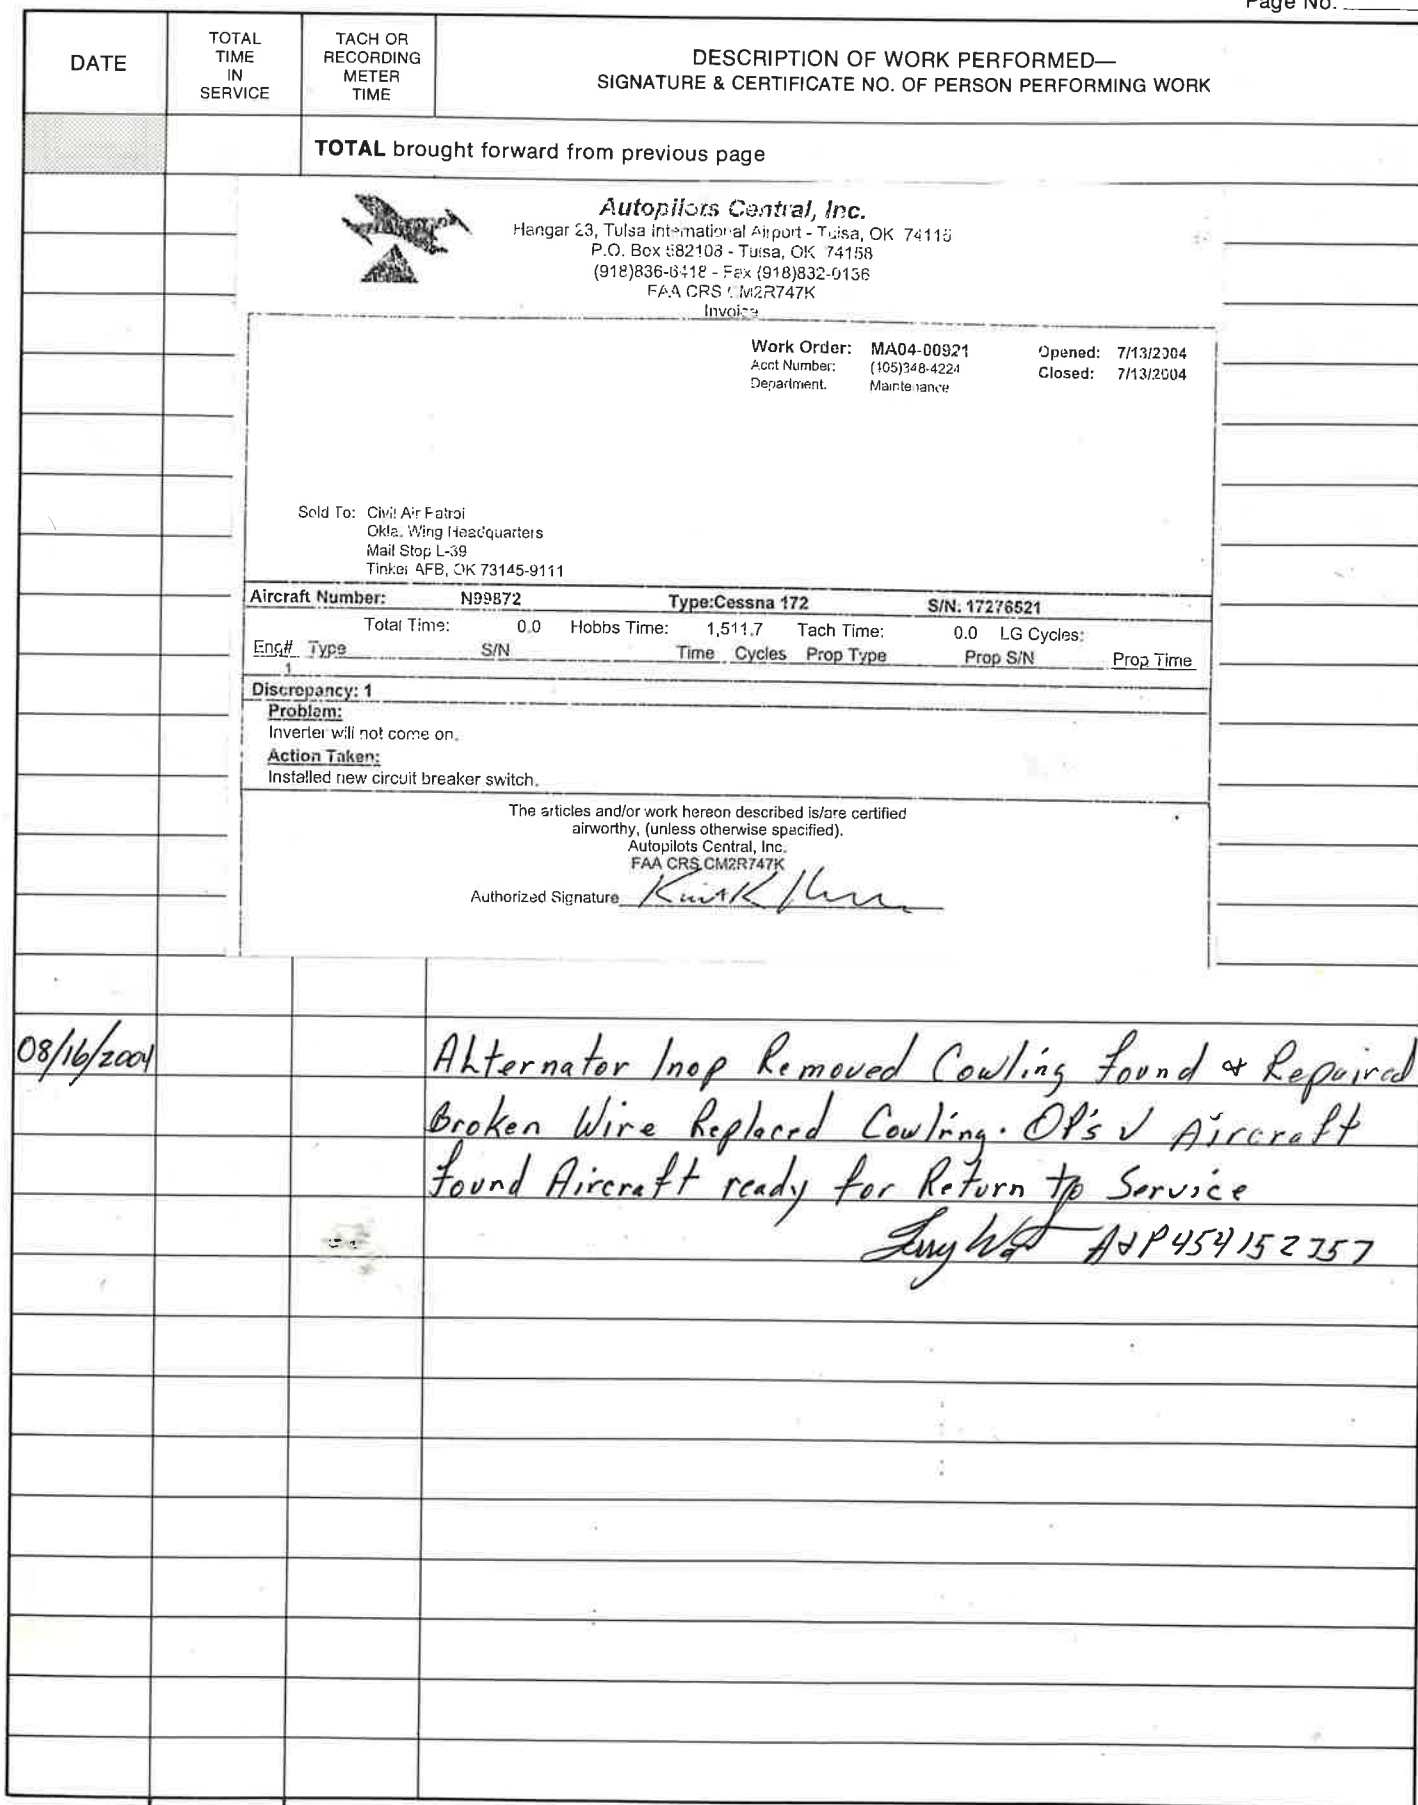 Page No.
DATE
TOTAL TIME IN SERVICE
TACH OR RECORDING METER TIME
DESCRIPTION OF WORK PERFORMED—
SIGNATURE & CERTIFICATE NO. OF PERSON PERFORMING WORK
TOTAL brought forward from previous page
Autopilots Central, Inc.
Hangar 23, Tulsa International Airport - Tulsa, OK 74115
P.O. Box 582108 - Tulsa, OK 74158
(918)836-6418 - Fax (918)832-0136
FAA CRS CM2R747K
Invoice
Work Order: MA04-00921 Opened: 7/13/2004
Acct Number: (405)348-4224 Closed: 7/13/2004
Department. Maintenance
Sold To: Civil Air Patrol
Okla. Wing Headquarters
Mail Stop L-39
Tinker AFB, OK 73145-9111
Aircraft Number: N99872 Type:Cessna 172 S/N: 17276521
Total Time: 0.0 Hobbs Time: 1,511.7 Tach Time: 0.0 LG Cycles:
Eng# Type S/N Time Cycles Prop Type Prop S/N Prop Time
1
Discrepancy: 1
Problem:
Inverter will not come on.
Action Taken:
Installed new circuit breaker switch.
The articles and/or work hereon described is/are certified
airworthy, (unless otherwise specified).
Autopilots Central, Inc.
FAA CRS CM2R747K
Authorized Signature
08/16/2004 Alternator Inop Removed Cowling found & Repaired
Broken Wire Replaced Cowling. OP's ✓ Aircraft
found Aircraft ready for Return to Service
A&P 454152757